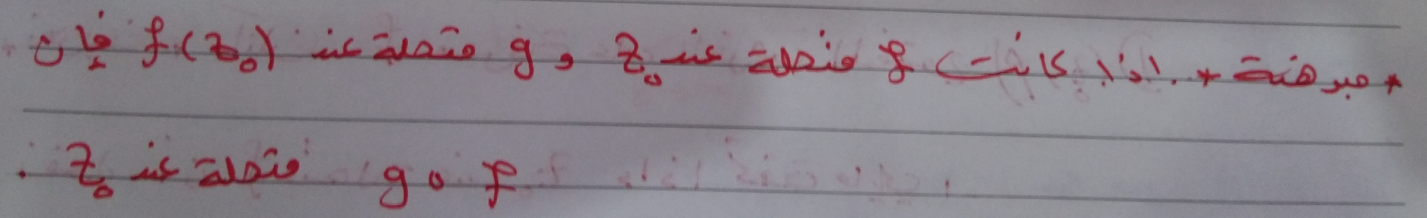 * مبرهنة * اذا كانت f متصلة عند z₀ و g متصلة عند f(z₀) فإن
g o f متصلة عند z₀ .